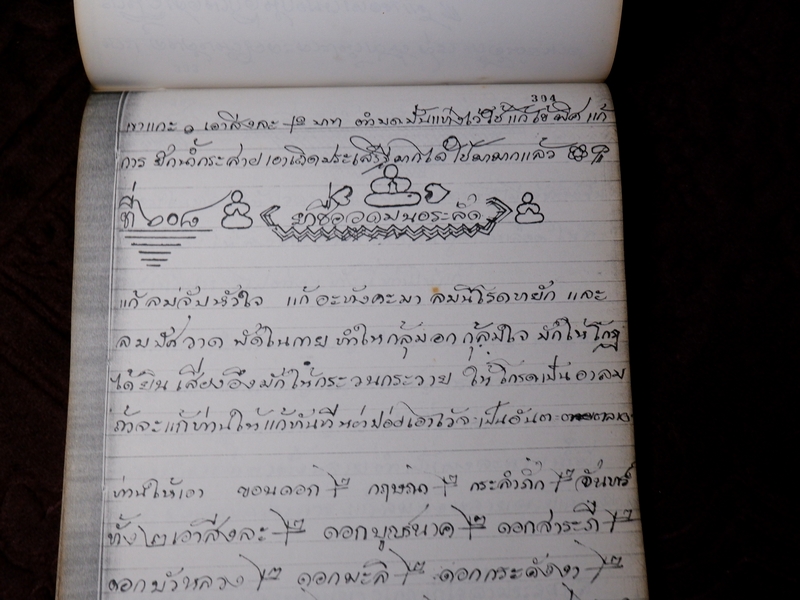 304
เขาแกะ ๑ เอาสิ่งละ บาท ตำบดปั้นแท่งไว้ใช้แก้ไข้พิศ แก้
การ อีกน้ำกระสายเอาเถิดประเสริฐมากได้ใช้มามากแล้ว
ที่ ๒๐๘ ยาชื่อ
แก้ลมจับหัวใจ แก้ ลมนี้โรดหยัก และ
ลม พัดในกาย ทำให้กลุ้มอก กลุ้มใจ มักให้โกรธ
ได้ยินเสียงอึงมักให้กระวนกระวาย ให้โกรดเป็น
ถ้าจะแก้ท่านให้แก้ทันทีหย่าปล่อยเอาไว้จะเป็นอันตะ
ท่านให้เอา ขอนดอก ๒ กฤษณา ๒ กระลำภัก ๒ จันทร์
ทั้ง ๒ เอาสิ่งละ ๒ ดอกบุญนาค ๒ ดอกสาระภี ๒
ดอกบัวหลวง ๒ ดอกมะลิ ๒ ดอกกระดังงา ๒